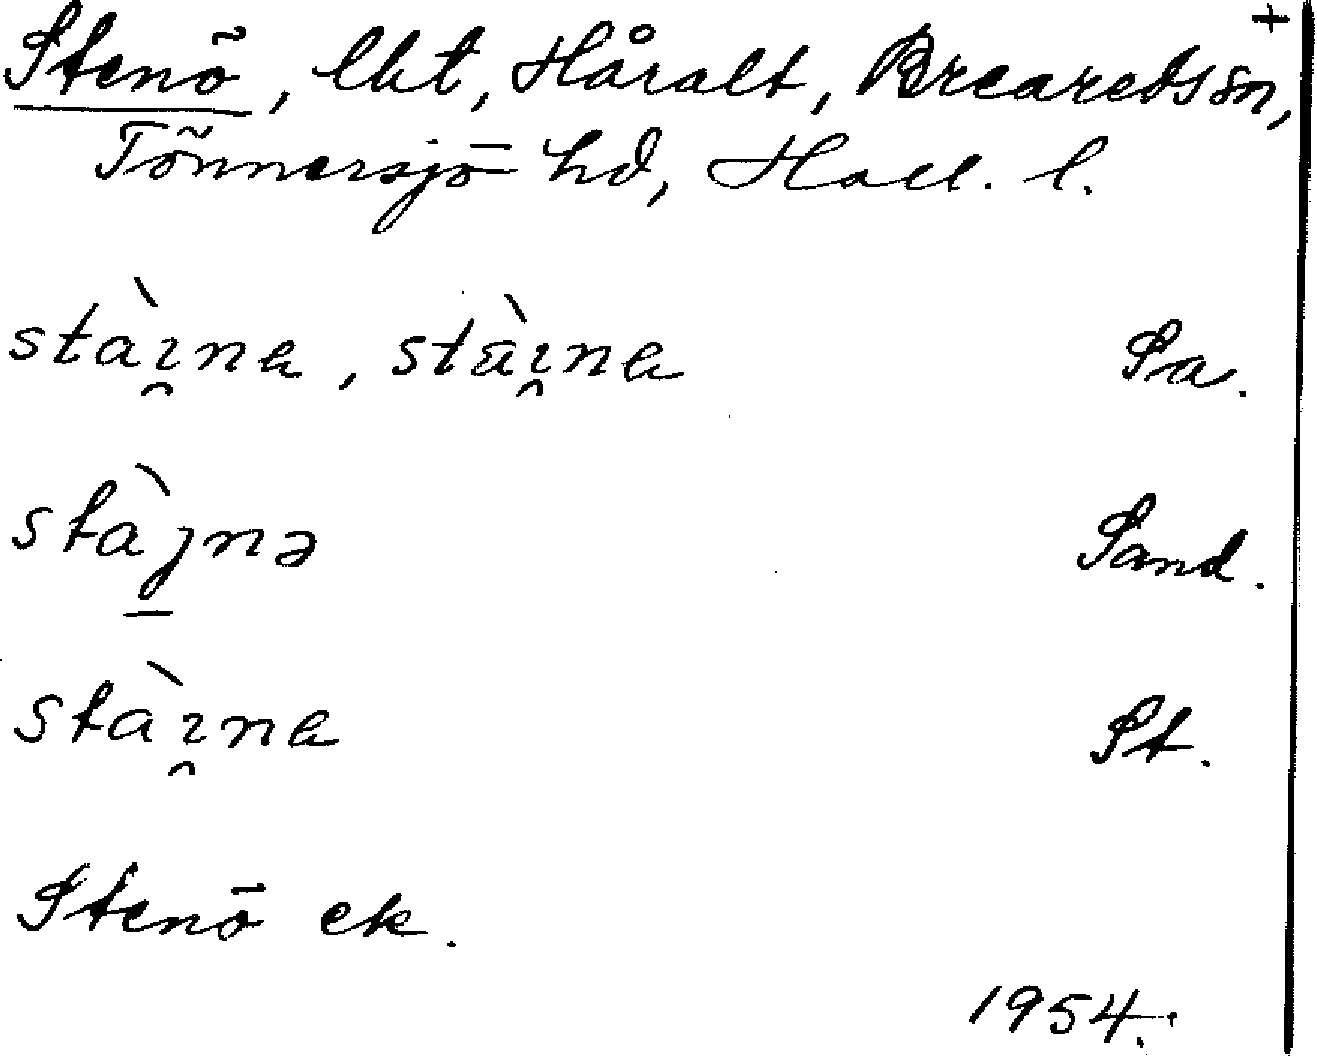 +
Stenö, lht, Håralt, Breareds sn,
Tönnersjö hd, Hall. l.
stàı̯na, stā̀ı̯na Sa.
stàȷnə Sand.
stàı̯na St.
Stenö ek.
1954.